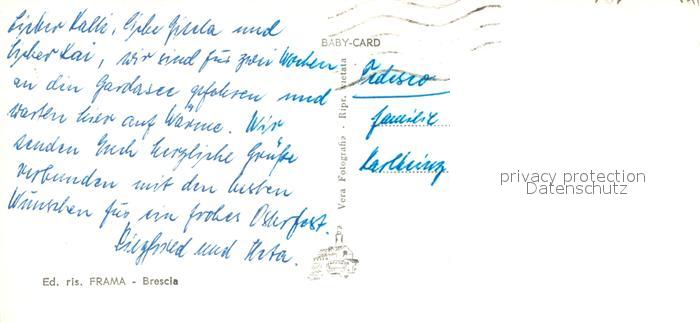 Lieber Kalli, liebe Gisela und
lieber Kai, wir sind für zwei Wochen
an den Gardasee gefahren und
warten hier auf Wärme. Wir
senden Euch herzliche Grüße
verbunden mit den besten
Wünschen für ein frohes Osterfest.
Siegfried und Uta.
Ed. ris. FRAMA - Brescia
BABY-CARD
Vera Fotografia - Ripr. vietata
Tedesco
Familie
Karlheinz
privacy protection
Datenschutz